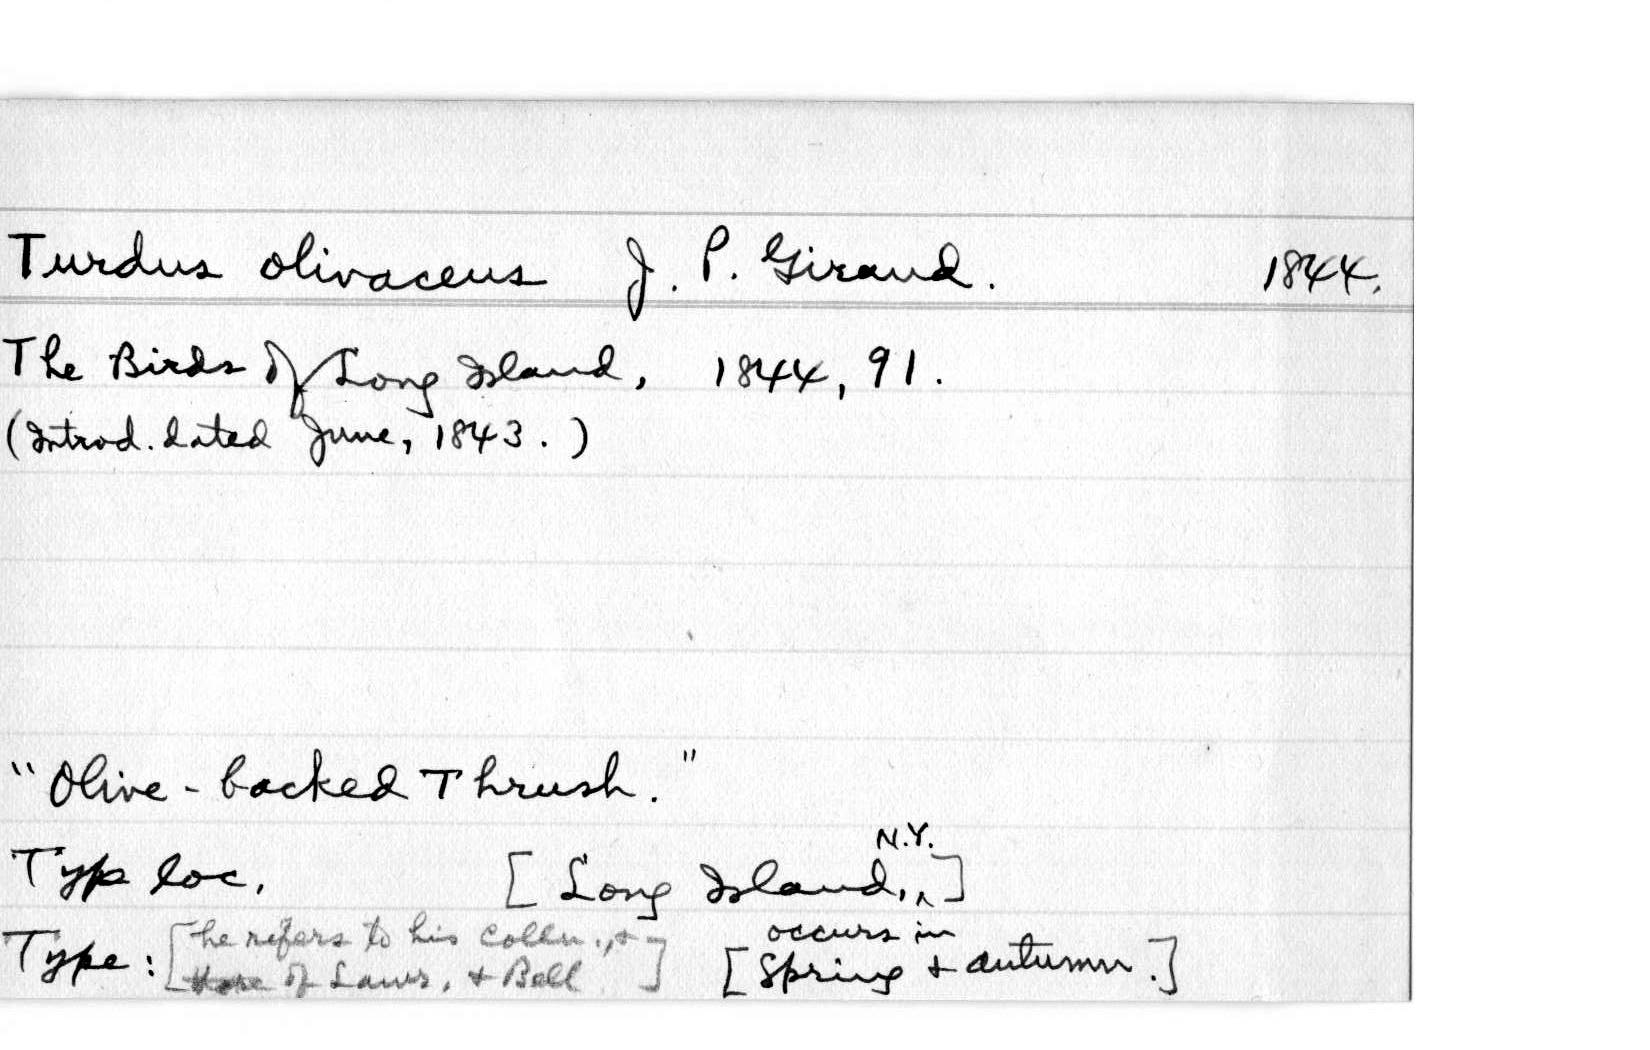 Turdus olivaceus J. P. Giraud. 1844.
The Birds of Long Island, 1844, 91.
(Introd. dated June, 1843.)
"Olive-backed Thrush."
Type loc. [Long Island, N.Y.]
Type: [he refers to his colln., & those of Lawr. & Bell] [occurs in Spring & autumn.]